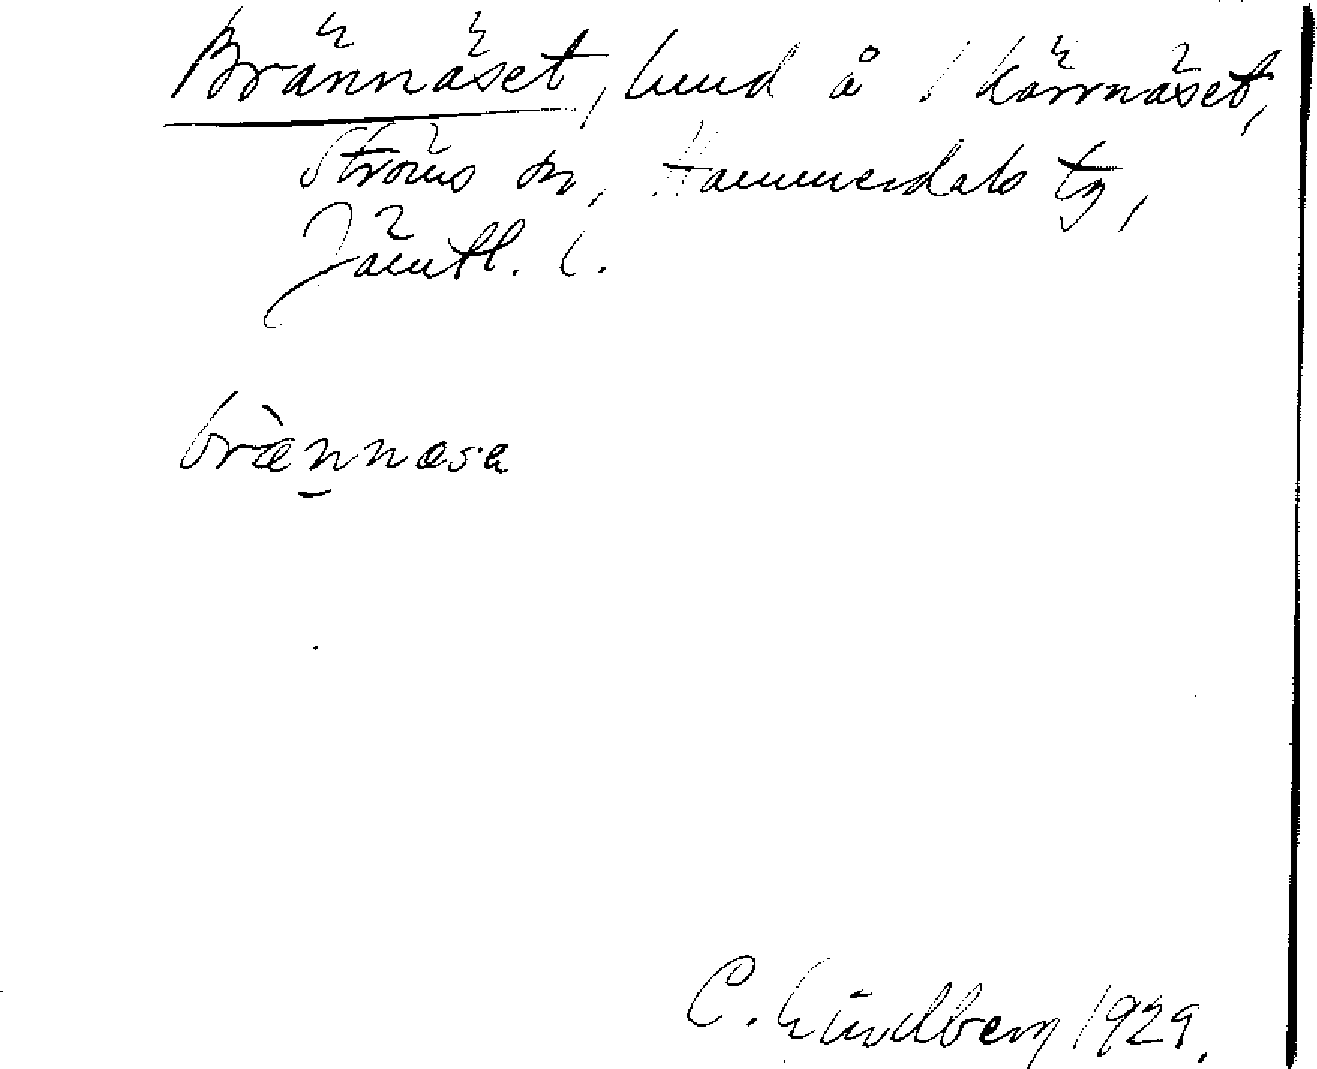 Brännäset, hmd å Kärrnäset,
Ströms sn, Hammerdals tg,
Jämtl. l.
brænnæsa
C. Lindberg 1929.